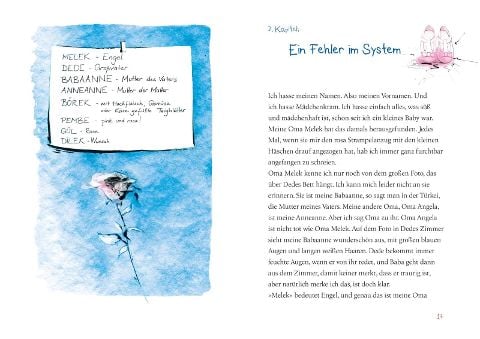 MELEK - Engel
DEDE - Großvater
BABAANNE - Mutter des Vaters
ANNEANNE - Mutter der Mutter
BÖREK - mit Hackfleisch, Gemüse
oder Käse gefüllte Teigblätter
PEMBE - pink und rosa!
GÜL - Rose
DILEK - Wunsch
2. Kapitel
Ein Fehler im System
Ich hasse meinen Namen. Also meinen Vornamen. Und
ich hasse Mädchenkram. Ich hasse einfach alles, was süß
und mädchenhaft ist, schon seit ich ein kleines Baby war.
Meine Oma Melek hat das damals herausgefunden. Jedes
Mal, wenn sie mir den rosa Strampelanzug mit den kleinen
Häschen drauf angezogen hat, hab ich immer ganz furchtbar
angefangen zu schreien.
Oma Melek kenne ich nur noch von dem großen Foto, das
über Dedes Bett hängt. Ich kann mich leider nicht an sie
erinnern. Sie ist meine Babaanne, so sagt man in der Türkei,
die Mutter meines Vaters. Meine andere Oma, Oma Angela,
ist meine Anneanne. Aber ich sag Oma zu ihr. Oma Angela
ist nicht tot wie Oma Melek. Auf dem Foto in Dedes Zimmer
sieht meine Babaanne wunderschön aus, mit großen blauen
Augen und langen weißen Haaren. Dede bekommt immer
feuchte Augen, wenn er von ihr redet, und Baba geht dann
aus dem Zimmer, damit keiner merkt, dass er traurig ist,
aber natürlich merk ich das, ist doch klar.
»Melek« bedeutet Engel, und genau das ist meine Oma